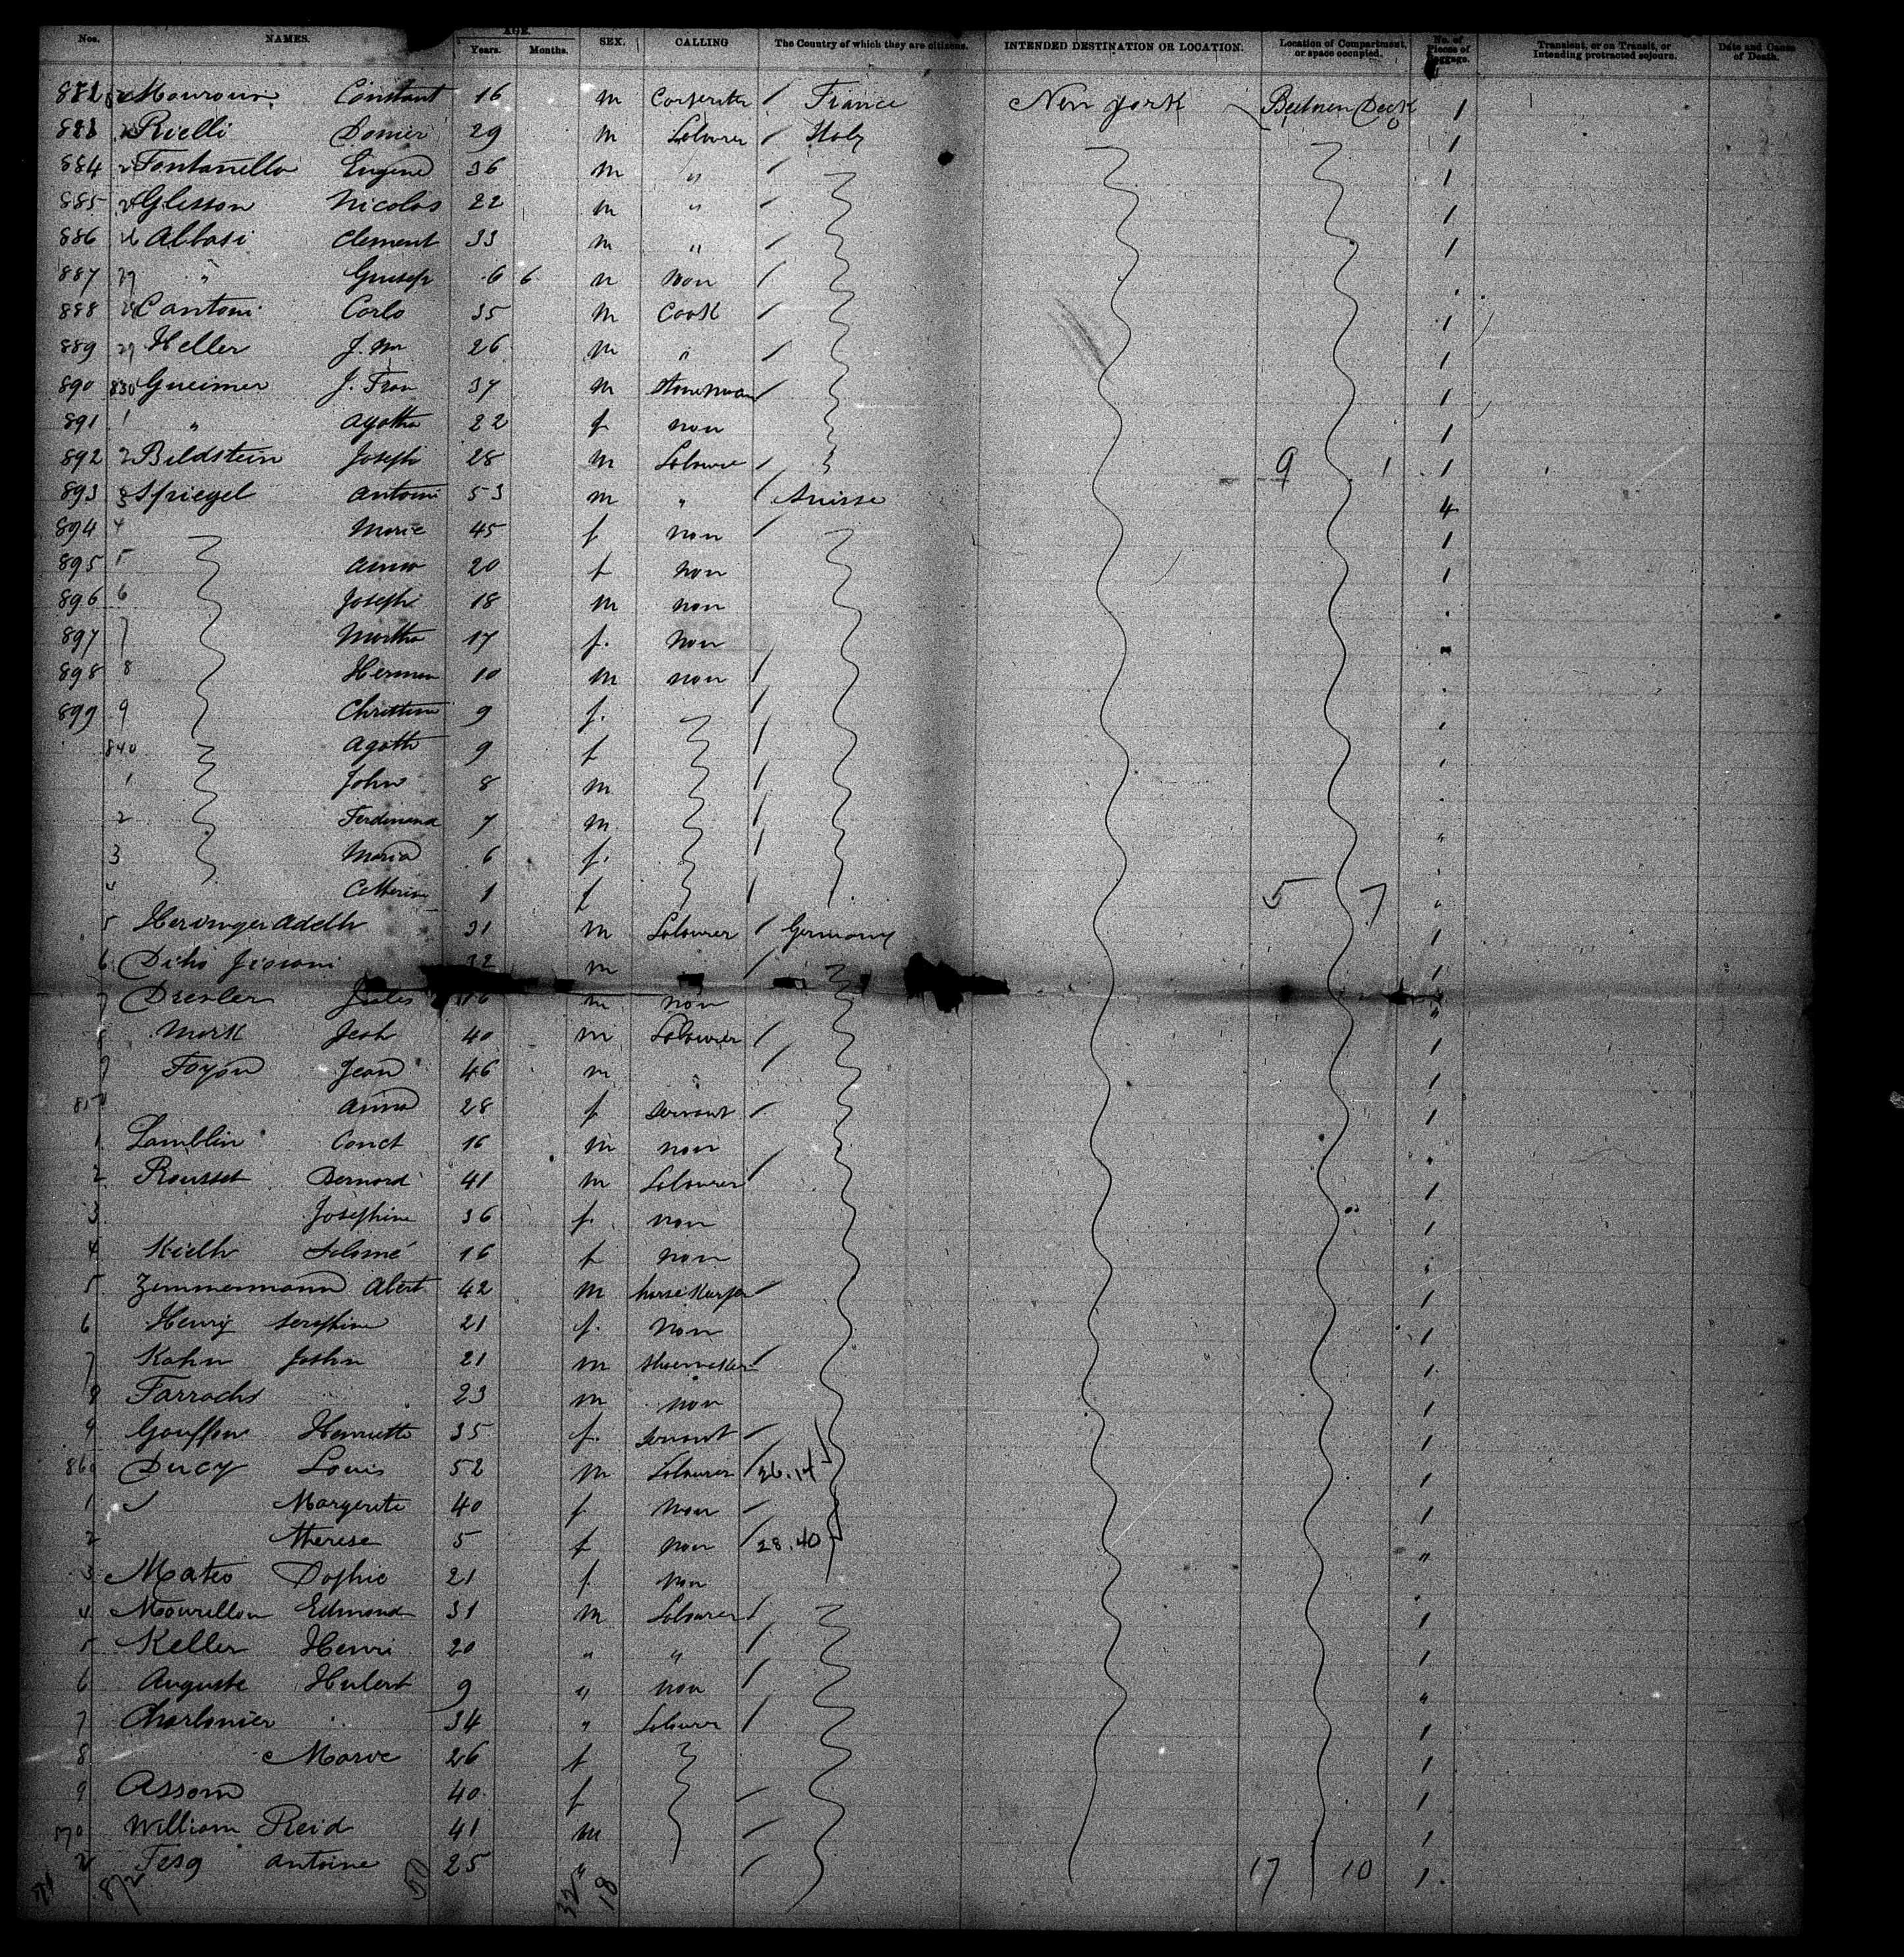 Nos. NAMES. AGE. Years. Months. SEX. CALLING The Country of which they are citizens. INTENDED DESTINATION OR LOCATION. Location of Compartment, or space occupied. No. of Pieces of Baggage. Transient, or on Transit, or Intending protracted sojourn. Date and Cause of Death.
Constant 16 m Carpenter / France New York Between Deck 1
Rielli 29 m Labourer / Italy 1
884 Fontanella Eugene 36 m " / 1
885 Glesson Nicolas 22 m " / 1
886 Albasi Clement 33 m " / 1
887 27 " Giusep 6 6 m non /
888 28 Cantoni Carlo 35 m Cook / 1
889 29 Heller J. 26 m " / 1
890 830 Gueimer J. Fran 37 m / 1
891 1 " Agatha 22 f non 1
892 2 Bildstein Joseph 28 m Laboure / 9 1 1
893 3 Spiegel Antoni 53 m " / Suisse 4
894 4 Marie 45 f non / 1
895 5 Anna 20 f non 1
896 6 Joseph 18 m non
897 7 Martha 17 f. non
898 8 Herman 10 m non /
899 9 Christina 9 f. /
840 Agath 9 f /
1 John 8 m /
2 Ferdinand 7 m / "
3 Maria 6 f. /
4 Catherin 1 f / 5 7 "
5 Heringer Adelh 31 m Labourer / Germany 1
6 32 m / 1
7 Dresler Jules 16 m non "
8 Mark 40 m Labourer / 1
9 Foyon Jean 46 m " / 1
850 Anna 28 f Servant / 1
1 Lamblin Const 16 m non "
2 Rousset Bernard 41 m Labourer / 1
3 Josephine 36 f. non 1
4 Kielh Salomé 16 f non
5 Zimmermann Albert 42 m / 1
6 Henry Seraphine 21 f. non 1
7 Kahn 21 m Shoemaker / 1
8 Farrachs 23 m non 1
9 Gauffon Henriette 35 f. Servant / 1
860 Ducy Louis 52 m Labourer / 26.14 1
1 " Margerite 40 f non / 1
2 Therese 5 f non / 28.40 "
3 Mateo Sophie 21 f non
4 Mourillon Edmond 31 m Labourer / 1
5 Keller Henri 20 " " / 1
6 Auguste Hubert 9 " non / "
7 Charbonier 34 " Labourer / 1
8 Marie 26 f 1
9 Assom 40 f / 1
870 William Reid 41 m / 1
Antoine 25 " / 17 10 1
872 50 32 18